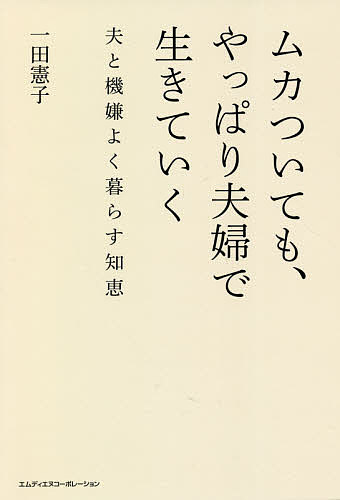 ムカついても、
やっぱり夫婦で
生きていく
夫と機嫌よく暮らす知恵
一田憲子
エムディエヌコーポレーション